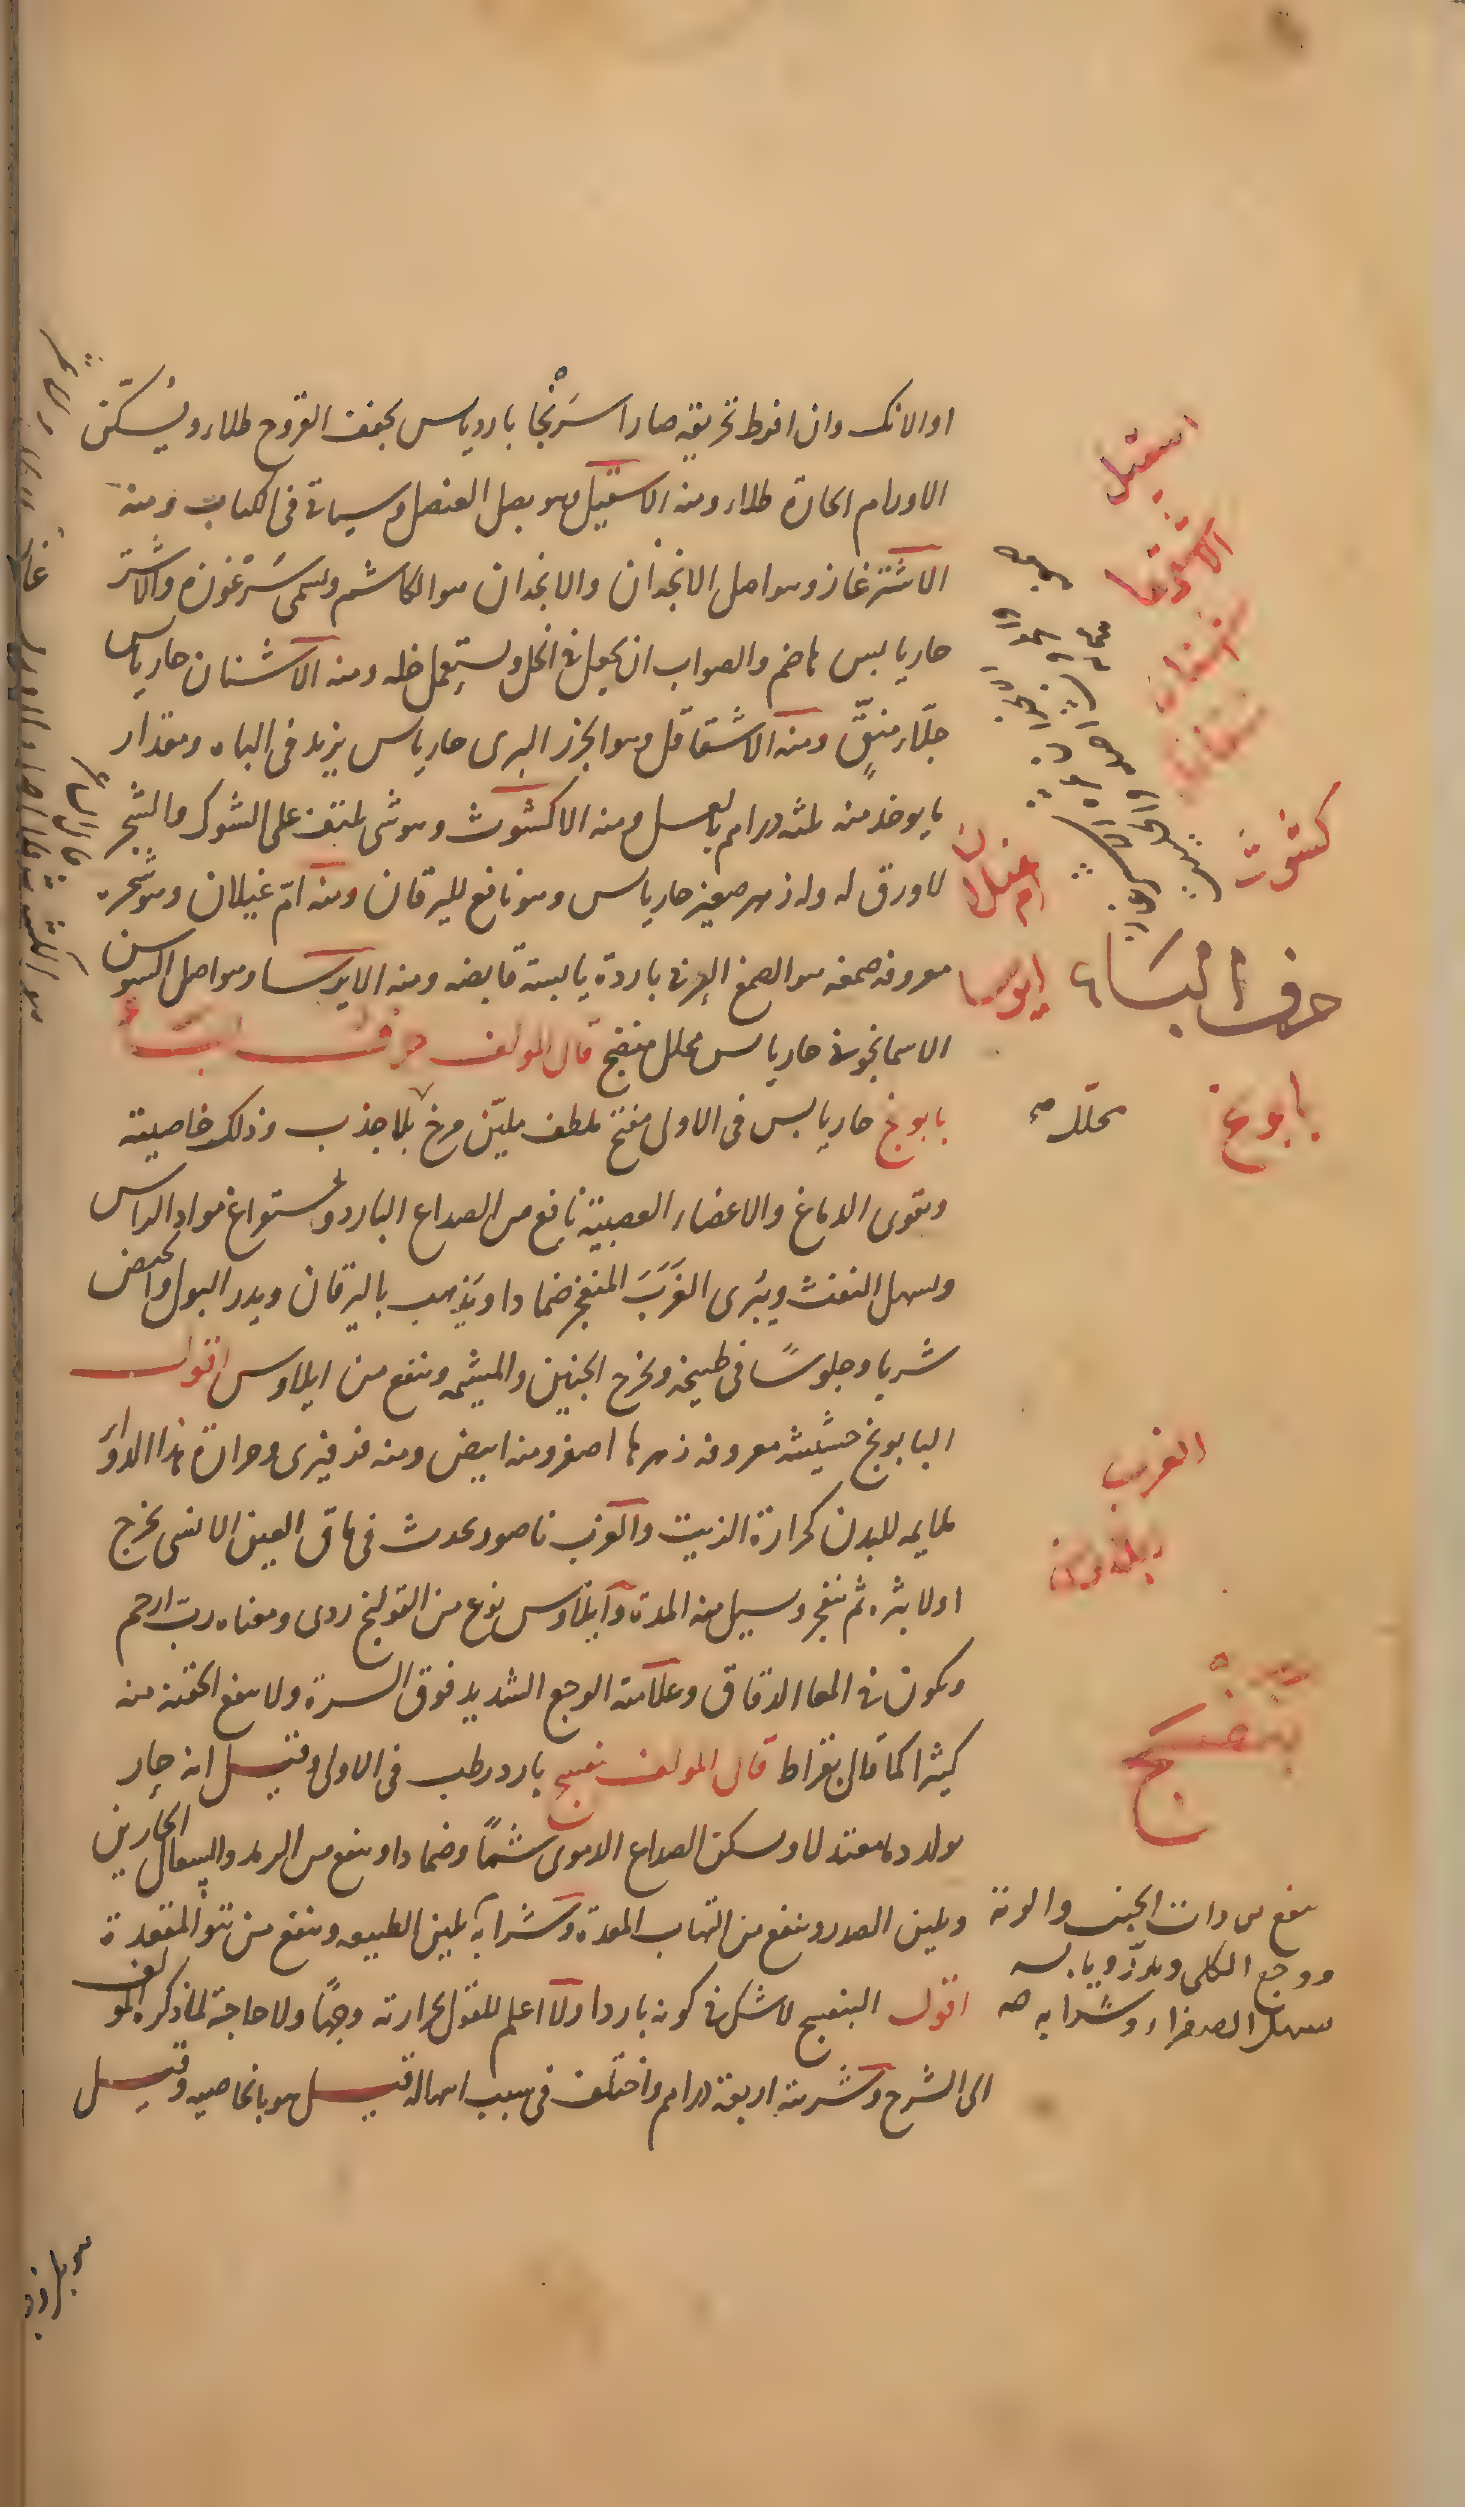 او الانك وان افرط تحريقه صار اسرنجا بارد يابس يجفف القروح طلاء ويسكن
الاورام الحارة طلاء ومنه الاسقيل وهو بصل العنصل وسياتى فى الكتاب ومنه
الاشترغاز وهو اصل الانجذان والانجدان هو الكاشم ويسمى سترغزه والاشتر
حار يابس هاضم والصواب ان يجعل فى الخل ويستعمل خله ومنه الاشنان حار يابس
جلاء منق ومنه الاشقاقل وهو الجزر البرى حار يابس يزيد فى الباه ومقدار
ما يوخذ منه ثلثه دراهم بالعسل ومنه الاكشوث وهو شى يلتف على الشوك والشجر
لا ورق له وله زهر صغير حار يابس وهو نافع لليرقان ومنه ام غيلان وهو شجره
معروفه صمغه هو الصمغ العربى باردة يابسة قابضه ومنه الايرسا وهو اصل السوسن
الاسمانجونى حار يابس محلل منضج قال المولف حرف الباء
بابونج حار يابس فى الاولى مفتح ملطف ملين مرخ بلا جذب وذلك خاصيته
ويقوى الدماغ والاعضاء العصبية نافع من الصداع البارد ولاستفراغ مواد الراس
ويسهل النفث ويبرى الغرب المنفجر ضمادا ويذهب باليرقان ويدر البول والحيض
شربا وجلوسا فى طبيخه ويخرج الجنين والمشيمه وينفع من ايلاوس اقول
البابونج حشيشه معروفه زهرها اصفر ومنه ابيض ومنه فرفيرى وحرارة هذا الدواء
ملايمه للبدن كحرارة الزيت والغرب ناصور يحدث فى ماق العين الانسى يخرج
اولا بثره ثم تنفجر ويسيل منه المدة وايلاوس نوع من القولنج ردى ومعناه رب ارحم
ويكون فى المعا الدقاق وعلامته الوجع الشديد فوق السرة ولا ينفع الحقنه منه
كثيرا كما قال بقراط قال المولف بنفسج بارد رطب فى الاولى وقيل انه حار
يولد دما معتدلا ويسكن الصداع الدموى شما وضمادا وينفع من الرمد والسعال الحارين
ويلين الصدر وينفع من التهاب المعدة وشرابه يلين الطبيعه وينفع من نتو المقعدة
اقول البنفسج لا شك فى كونه باردا ولا اعلم للقول بحرارته وجها ولا حاجة لما ذكره المولف
الى الشرح وشربته اربعة دراهم واختلف فى سبب اسهاله قيل هو بالخاصيه وقيل
اسقيل
اشنان
كشوث
ام غيلان
ايرسا
حرف الباء
بابونج
محلل صح
الغرب
بنفسج
ينفع من ذات الجنب والرئة
ووجع الكلى ويدر ويابسه
يسهل الصفراء وشرابه صح